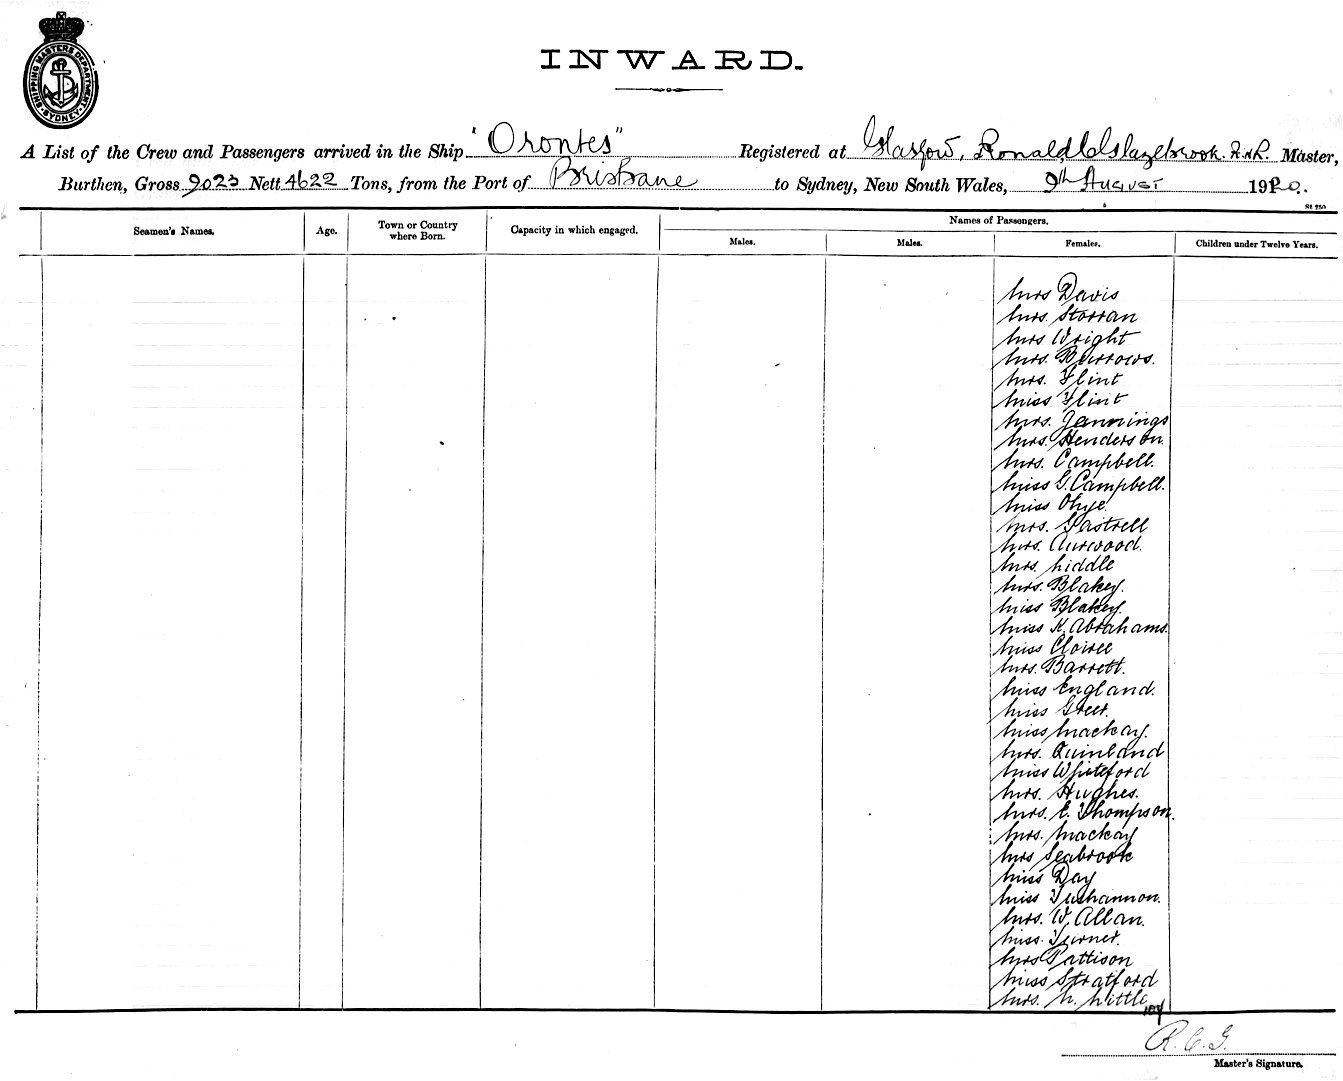 SHIPPING MASTERS DEPARTMENT
SYDNEY
INWARD.
A List of the Crew and Passengers arrived in the Ship "Orontes" Registered at Glasgow, Ronald C Glazebrook. R.N.R. Master,
Burthen, Gross 9023 Nett 4622 Tons, from the Port of Brisbane to Sydney, New South Wales, 9th August 1920.
St 750
Seamen's Names. Age. Town or Country where Born. Capacity in which engaged. Names of Passengers.
Males. Males. Females. Children under Twelve Years.
Mrs Davis
Mrs. Storran
Mrs Wright
Mrs. Burrows.
Mrs. Flint
Miss Flint
Mrs. Jennings
Mrs. Henderson.
Mrs. Campbell.
Miss G. Campbell.
Miss
Mrs. Gastrell
Mrs.
Mrs. Liddle
Mrs. Blakey.
Miss Blakey.
Miss K. Abrahams.
Miss
Mrs. Barrett.
Miss England.
Miss Greer.
Miss Mackay.
Mrs. Quinland
Miss Whiteford
Mrs. Hughes.
Mrs. E. Thompson.
Mrs. Mackay
Mrs Seabrook
Miss Day
Miss
Mrs. W. Allan.
Miss Turner.
Mrs Pattison
Miss Stratford
Mrs. N. Little
R.C.G.
Master's Signature.